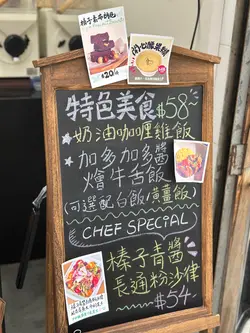 榛子
$20
特色美食 $58
★奶油咖喱雞飯
★加多加多醬
燴牛舌飯
(可選配白飯/黃薑飯)
CHEF SPECIAL
榛子青醬
長通粉沙律
$54